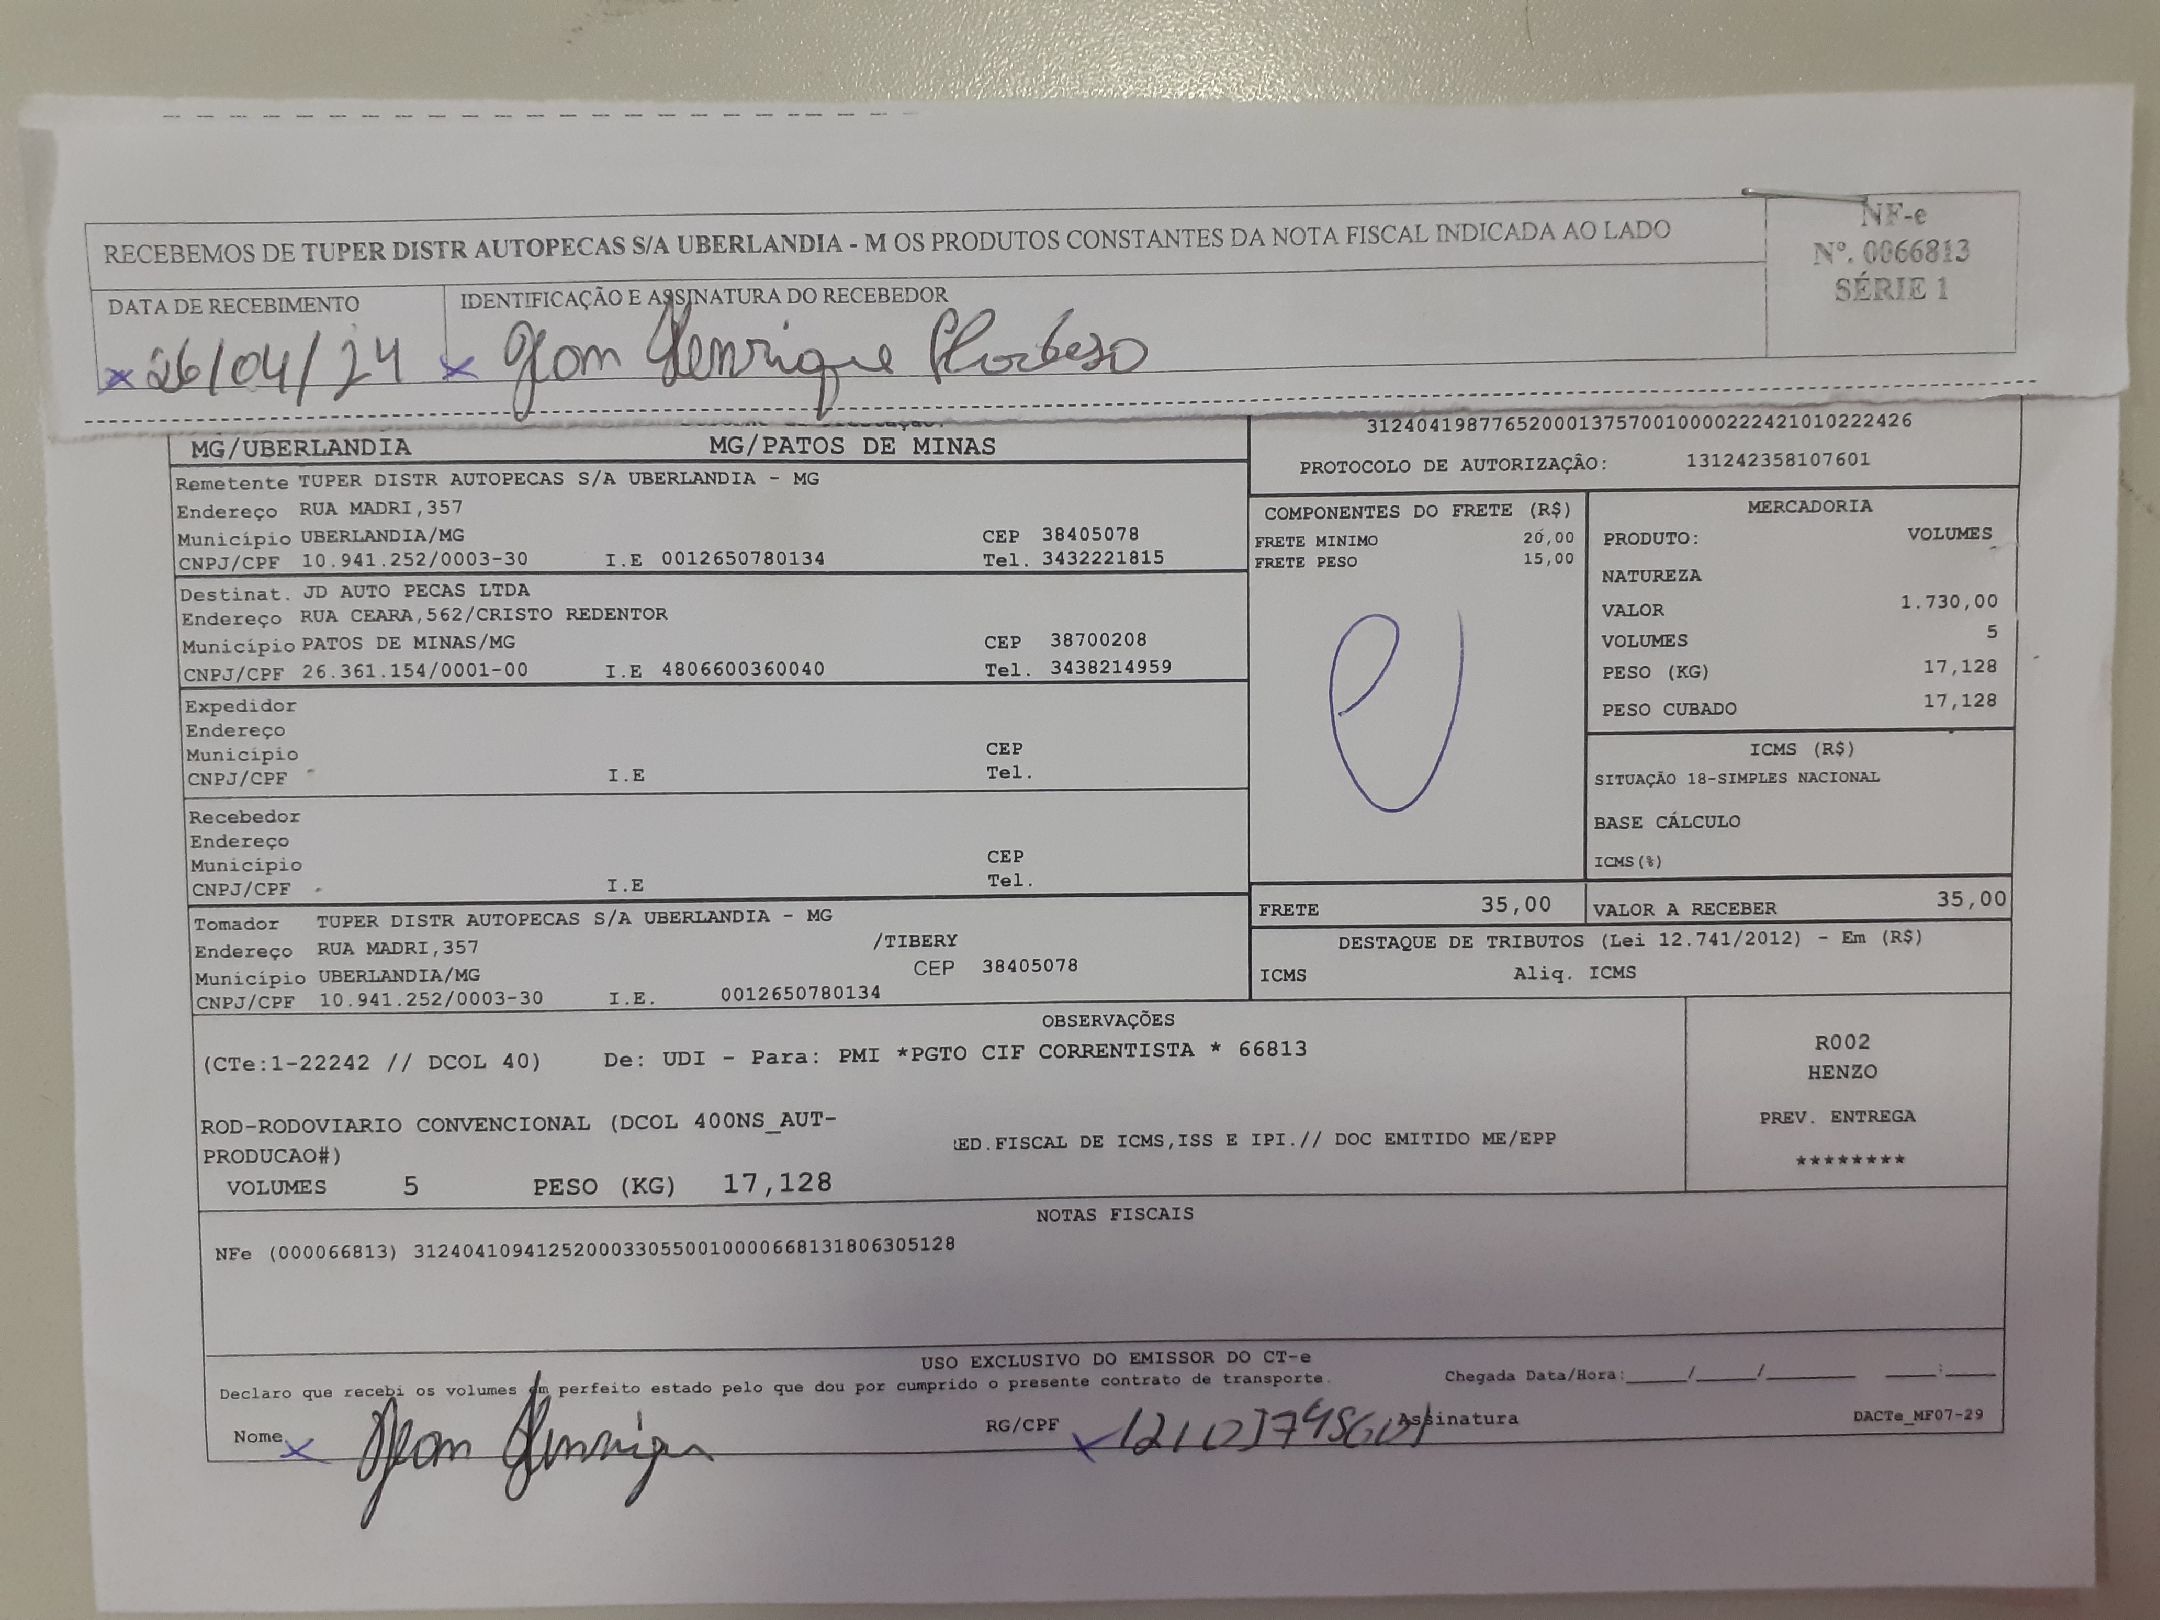 RECEBEMOS DE TUPER DISTR AUTOPECAS S/A UBERLANDIA - M OS PRODUTOS CONSTANTES DA NOTA FISCAL INDICADA AO LADO
NF-e
Nº. 0066813
SÉRIE 1
DATA DE RECEBIMENTO
IDENTIFICAÇÃO E ASSINATURA DO RECEBEDOR
x 26/04/24 x Henrique
MG/UBERLANDIA MG/PATOS DE MINAS
31240419877652000137570010000222421010222426
PROTOCOLO DE AUTORIZAÇÃO: 131242358107601
Remetente TUPER DISTR AUTOPECAS S/A UBERLANDIA - MG
Endereço RUA MADRI,357
Município UBERLANDIA/MG CEP 38405078
CNPJ/CPF 10.941.252/0003-30 I.E 0012650780134 Tel. 3432221815
Destinat. JD AUTO PECAS LTDA
Endereço RUA CEARA,562/CRISTO REDENTOR
Município PATOS DE MINAS/MG CEP 38700208
CNPJ/CPF 26.361.154/0001-00 I.E 4806600360040 Tel. 3438214959
Expedidor
Endereço
Município CEP
CNPJ/CPF I.E Tel.
Recebedor
Endereço
Município CEP
CNPJ/CPF I.E Tel.
Tomador TUPER DISTR AUTOPECAS S/A UBERLANDIA - MG
Endereço RUA MADRI,357 /TIBERY
Município UBERLANDIA/MG CEP 38405078
CNPJ/CPF 10.941.252/0003-30 I.E. 0012650780134
COMPONENTES DO FRETE (R$)
FRETE MINIMO 20,00
FRETE PESO 15,00
FRETE 35,00
MERCADORIA
PRODUTO: VOLUMES
NATUREZA
VALOR 1.730,00
VOLUMES 5
PESO (KG) 17,128
PESO CUBADO 17,128
ICMS (R$)
SITUAÇÃO 18-SIMPLES NACIONAL
BASE CÁLCULO
ICMS(%)
VALOR A RECEBER 35,00
DESTAQUE DE TRIBUTOS (Lei 12.741/2012) - Em (R$)
ICMS Aliq. ICMS
OBSERVAÇÕES
(CTe:1-22242 // DCOL 40) De: UDI - Para: PMI *PGTO CIF CORRENTISTA * 66813
ROD-RODOVIARIO CONVENCIONAL (DCOL 400NS_AUT-
PRODUCAO#)
ED.FISCAL DE ICMS,ISS E IPI.// DOC EMITIDO ME/EPP
VOLUMES 5 PESO (KG) 17,128
R002
HENZO
PREV. ENTREGA
********
NOTAS FISCAIS
NFe (000066813) 31240410941252000330550010000668131806305128
USO EXCLUSIVO DO EMISSOR DO CT-e
Declaro que recebi os volumes em perfeito estado pelo que dou por cumprido o presente contrato de transporte. Chegada Data/Hora:_____/_____/_______ ____:____
Nome x RG/CPF x Assinatura DACTe_MF07-29